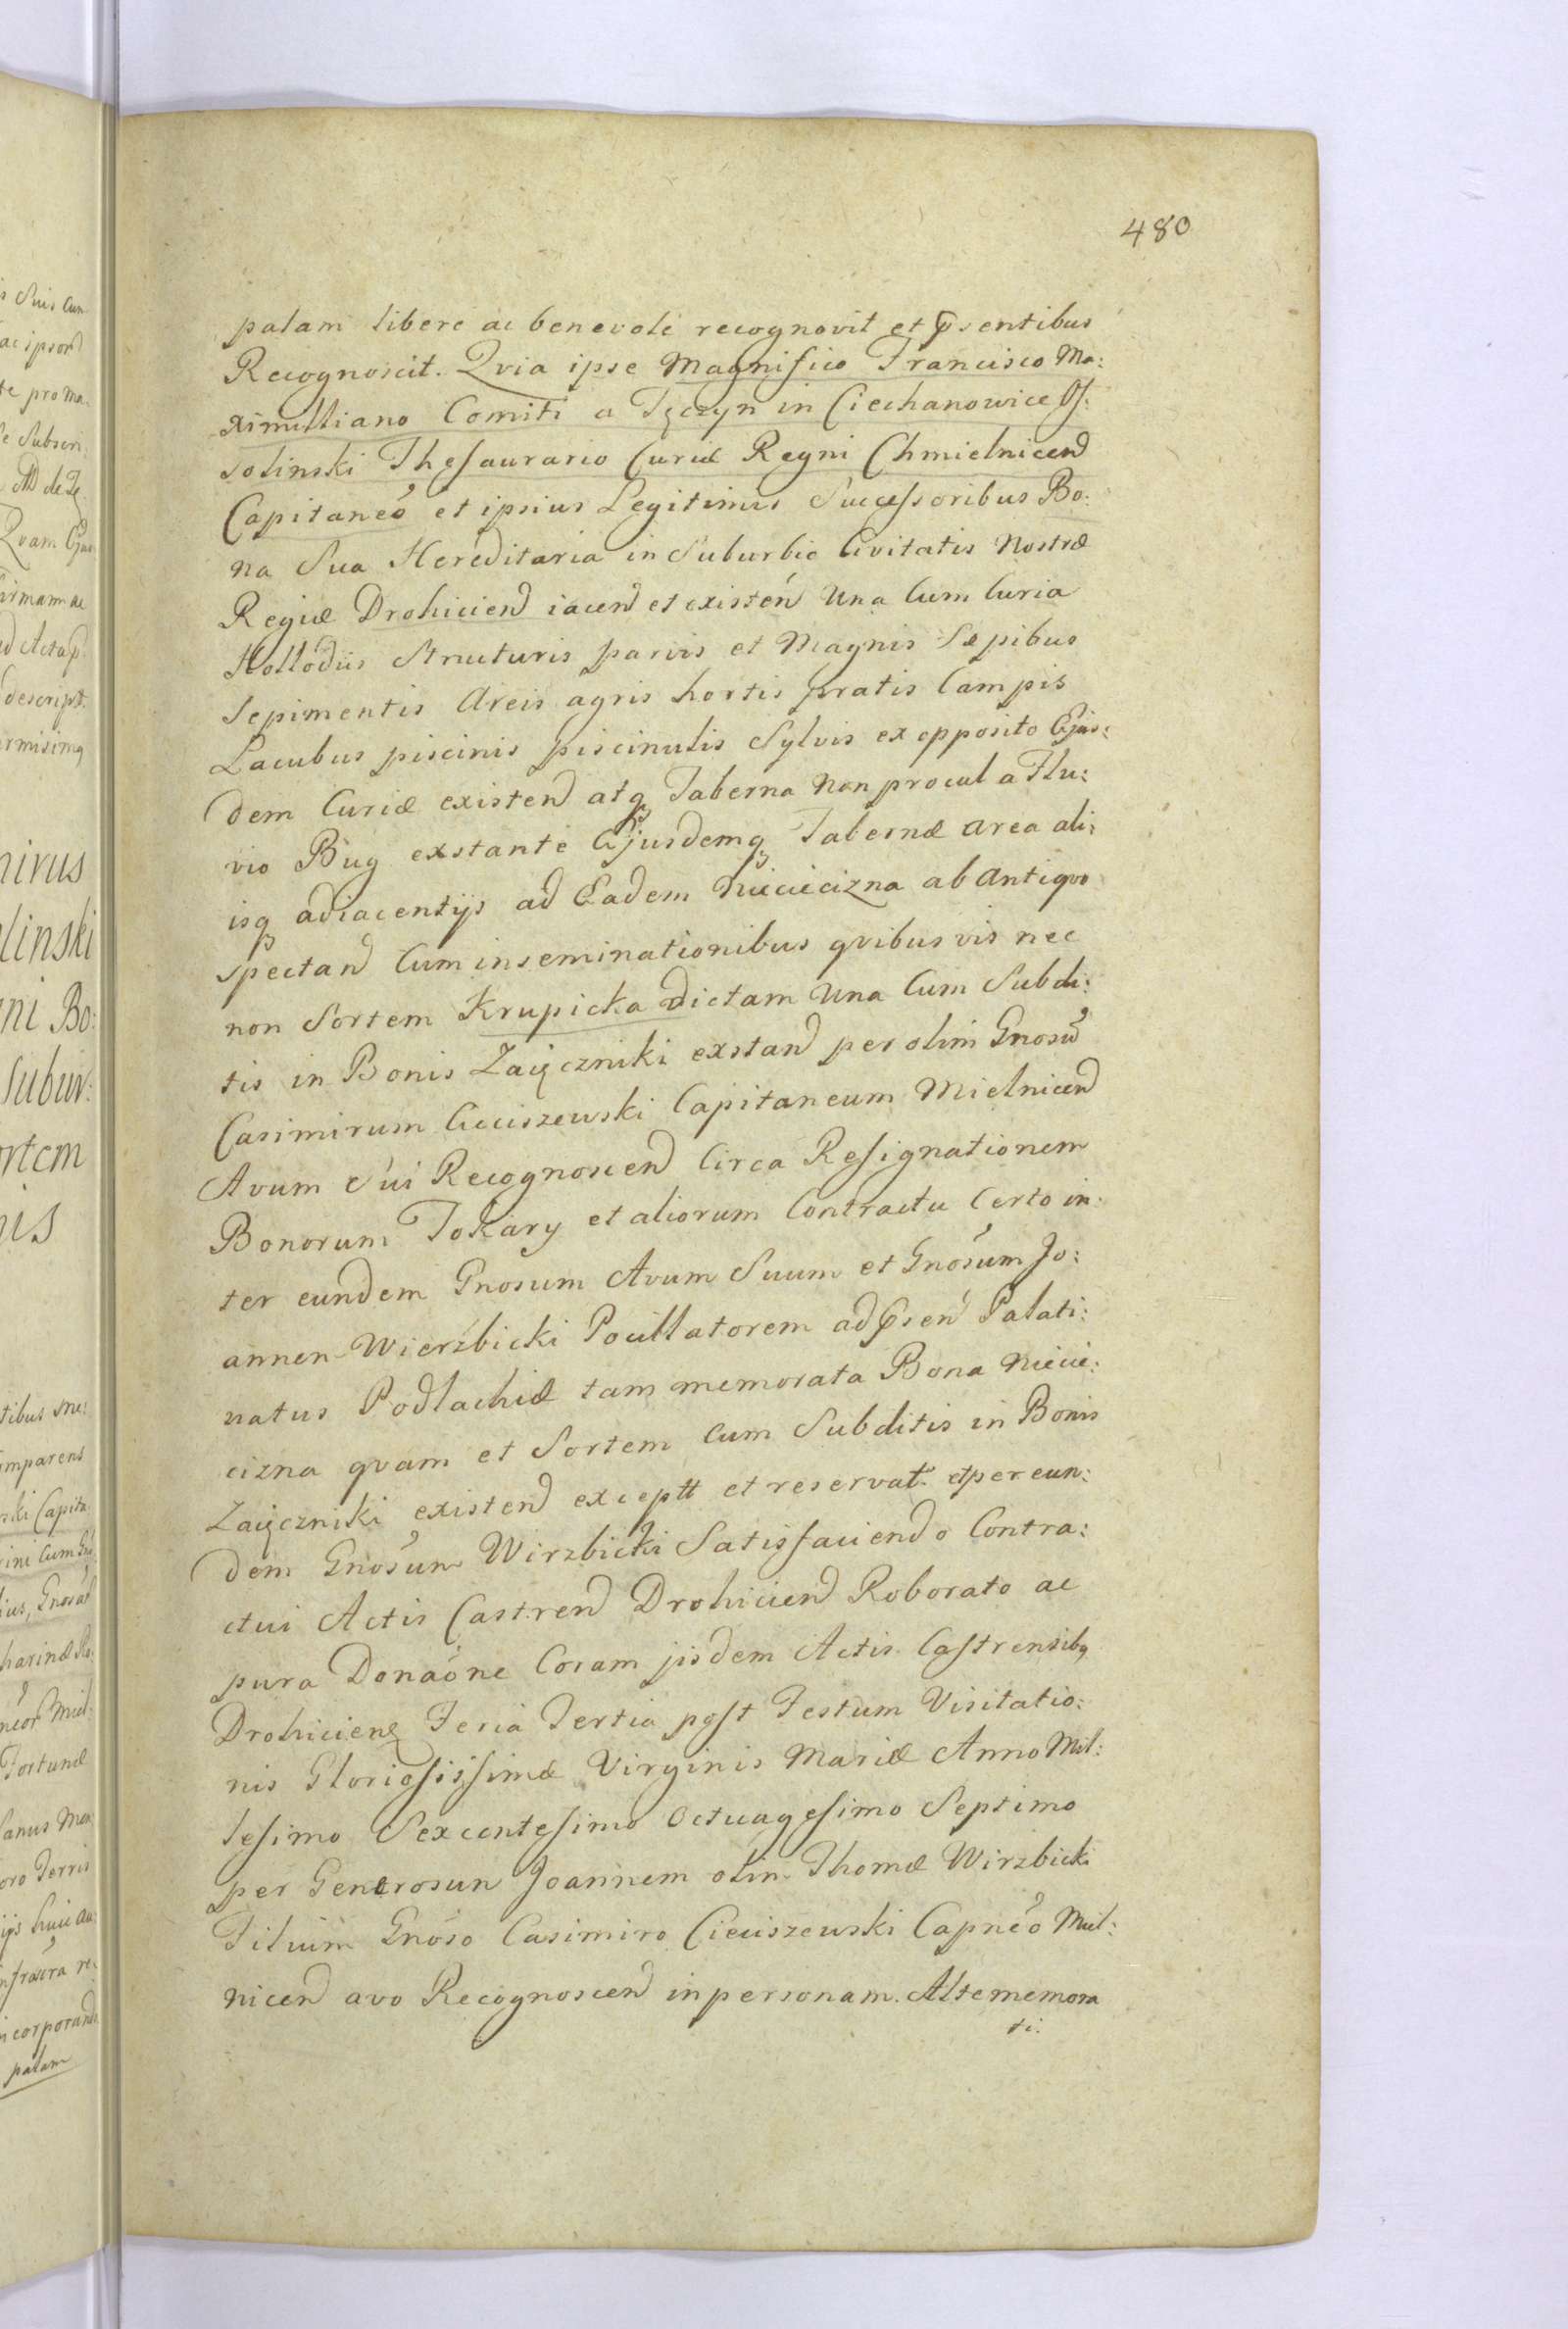 480
palam libere ac benevole recognovit et psentibus
Recognoscit. Qvia ipse Magnifico Francisco Ma:
ximilliano Comiti a Tęczyn in Ciechanowice Os:
solinski Thesaurario Curiæ Regni Chmielnicen
Capitaneo et ipsius Legitimis Successoribus Bo:
na Sua Hereditaria in Suburbio Civitatis Nostræ
Regiæ Drohicien iacen et existen Una Cum Curia
Hollodiis Structuris parvis et Magnis Sepibus
Sepimentis Areis agris hortis pratis Campis
Lacubus piscinis piscinulis Sylvis ex opposito Ejus:
dem Curiæ existen atq Taberna Non procul a Flu:
vio Bug exstante Ejusdemq Tabernæ area ali:
isq adiacentijs ad Eadem Nieciecizna ab Antiqvo
spectan Cum inseminationibus qvibusvis nec
non Sortem Krupicka dictam Una Cum Subdi:
tis in Bonis Zaięczniki exstan per olim Gnosum
Casimirum Cieciszewski Capitaneum Mielnicen
Avum Sui Recognoscen Circa Resignationem
Bonorum Tokary et aliorum Contractu Certo in:
ter eundem Gnosum Avum Suum et Gnosum Jo:
annen Wierzbicki Pocillatorem ad psen Palati:
natus Podlachiæ tam memorata Bona Niecie:
cizna qvam et Sortem Cum Subditis in Bonis
Zaięczniki existen exceptt et reservat. et per eun:
dem Gnosum Wirzbicki Satisfaciendo Contra:
ctui Actis Castren Drohicien Roborato ac
pura Donaone Coram jisdem Actis Castrensibq
Drohicienq Feria Tertia post Festum Visitatio:
nis Gloriosissimæ Virginis Mariæ Anno Mil:
lesimo Sexcentesimo Octuagesimo Septimo
per Generosun Joannem olim Thomæ Wirzbicki
Filium Gnoso Casimiro Cieciszewski Capneo Miel:
nicen avo Recognoscen in personam. Altememora
ti.